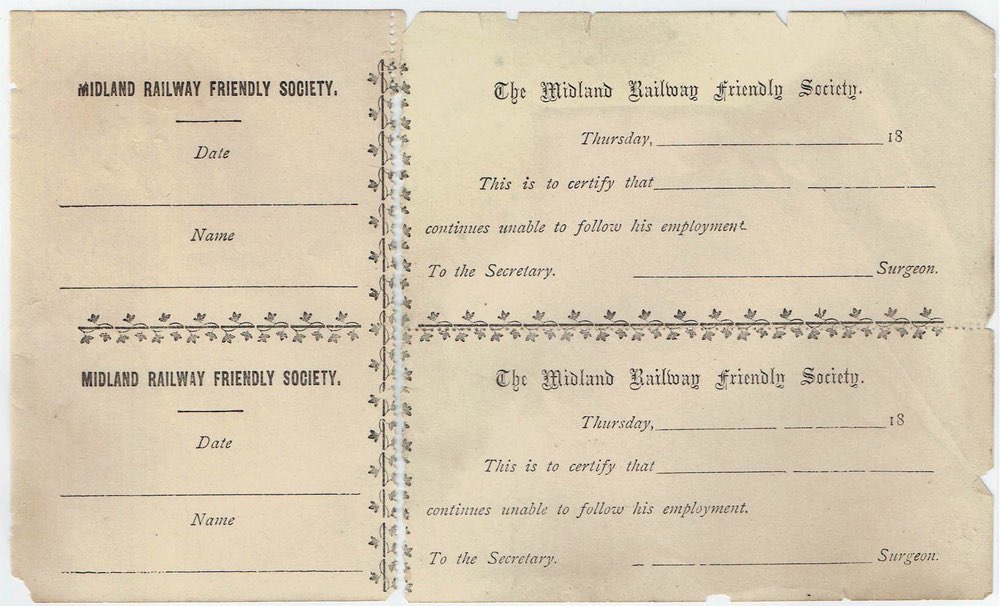 MIDLAND RAILWAY FRIENDLY SOCIETY.
Date
Name
The Midland Railway Friendly Society.
Thursday, 18
This is to certify that
continues unable to follow his employment.
To the Secretary. Surgeon.
MIDLAND RAILWAY FRIENDLY SOCIETY.
Date
Name
The Midland Railway Friendly Society.
Thursday, 18
This is to certify that
continues unable to follow his employment.
To the Secretary. Surgeon.